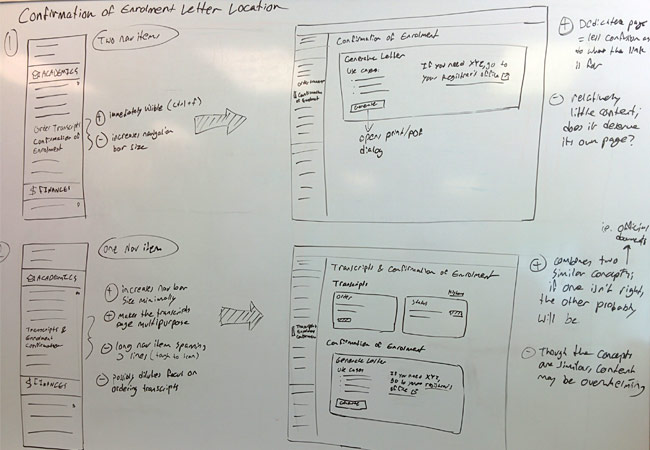 Confirmation of Enrolment Letter Location
1
Two nav items
ACADEMICS
Order Transcripts
Confirmation of
Enrolment
$ FINANCES
+ immediately visible (ctrl+f)
- increases navigation
bar size
Confirmation of Enrolment
Generate Letter
Use cases:
Generate
If you need XYZ, go to
your Registrar's office
opens print/PDF
dialog
+ Dedicated page
= less confusion as
to what the link
is for
- relatively
little content;
does it deserve
its own page?
2
one nav item
ACADEMICS
Transcripts &
Enrolment
Confirmation
$ FINANCES
+ increases nav bar
size minimally
+ makes the transcripts
page multipurpose
- long nav item spanning
3 lines (tough to scan)
- possibly dilutes focus on
ordering transcripts
Transcripts & Confirmation of Enrolment
Transcripts
Order
Status
History
Confirmation of Enrolment
Generate Letter
Use cases
Generate
If you need XYZ,
go to your registrar's
office
ie. official
documents
+ combines two
similar concepts;
if one isn't right,
the other probably
will be
- Though the concepts
are similar, content
may be overwhelming